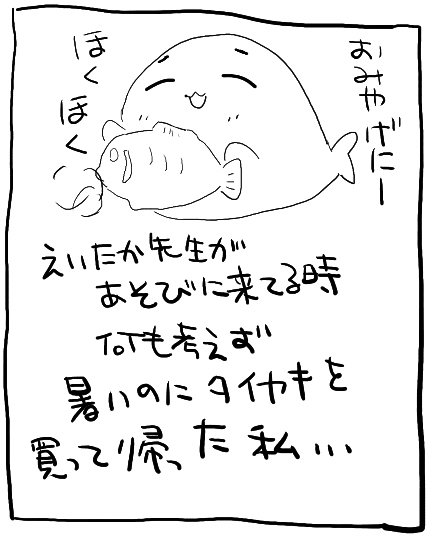 おみやげにー
ほくほく
えいたか先生が
あそびに来てる時
何も考えず
暑いのにタイヤキを
買って帰った私...